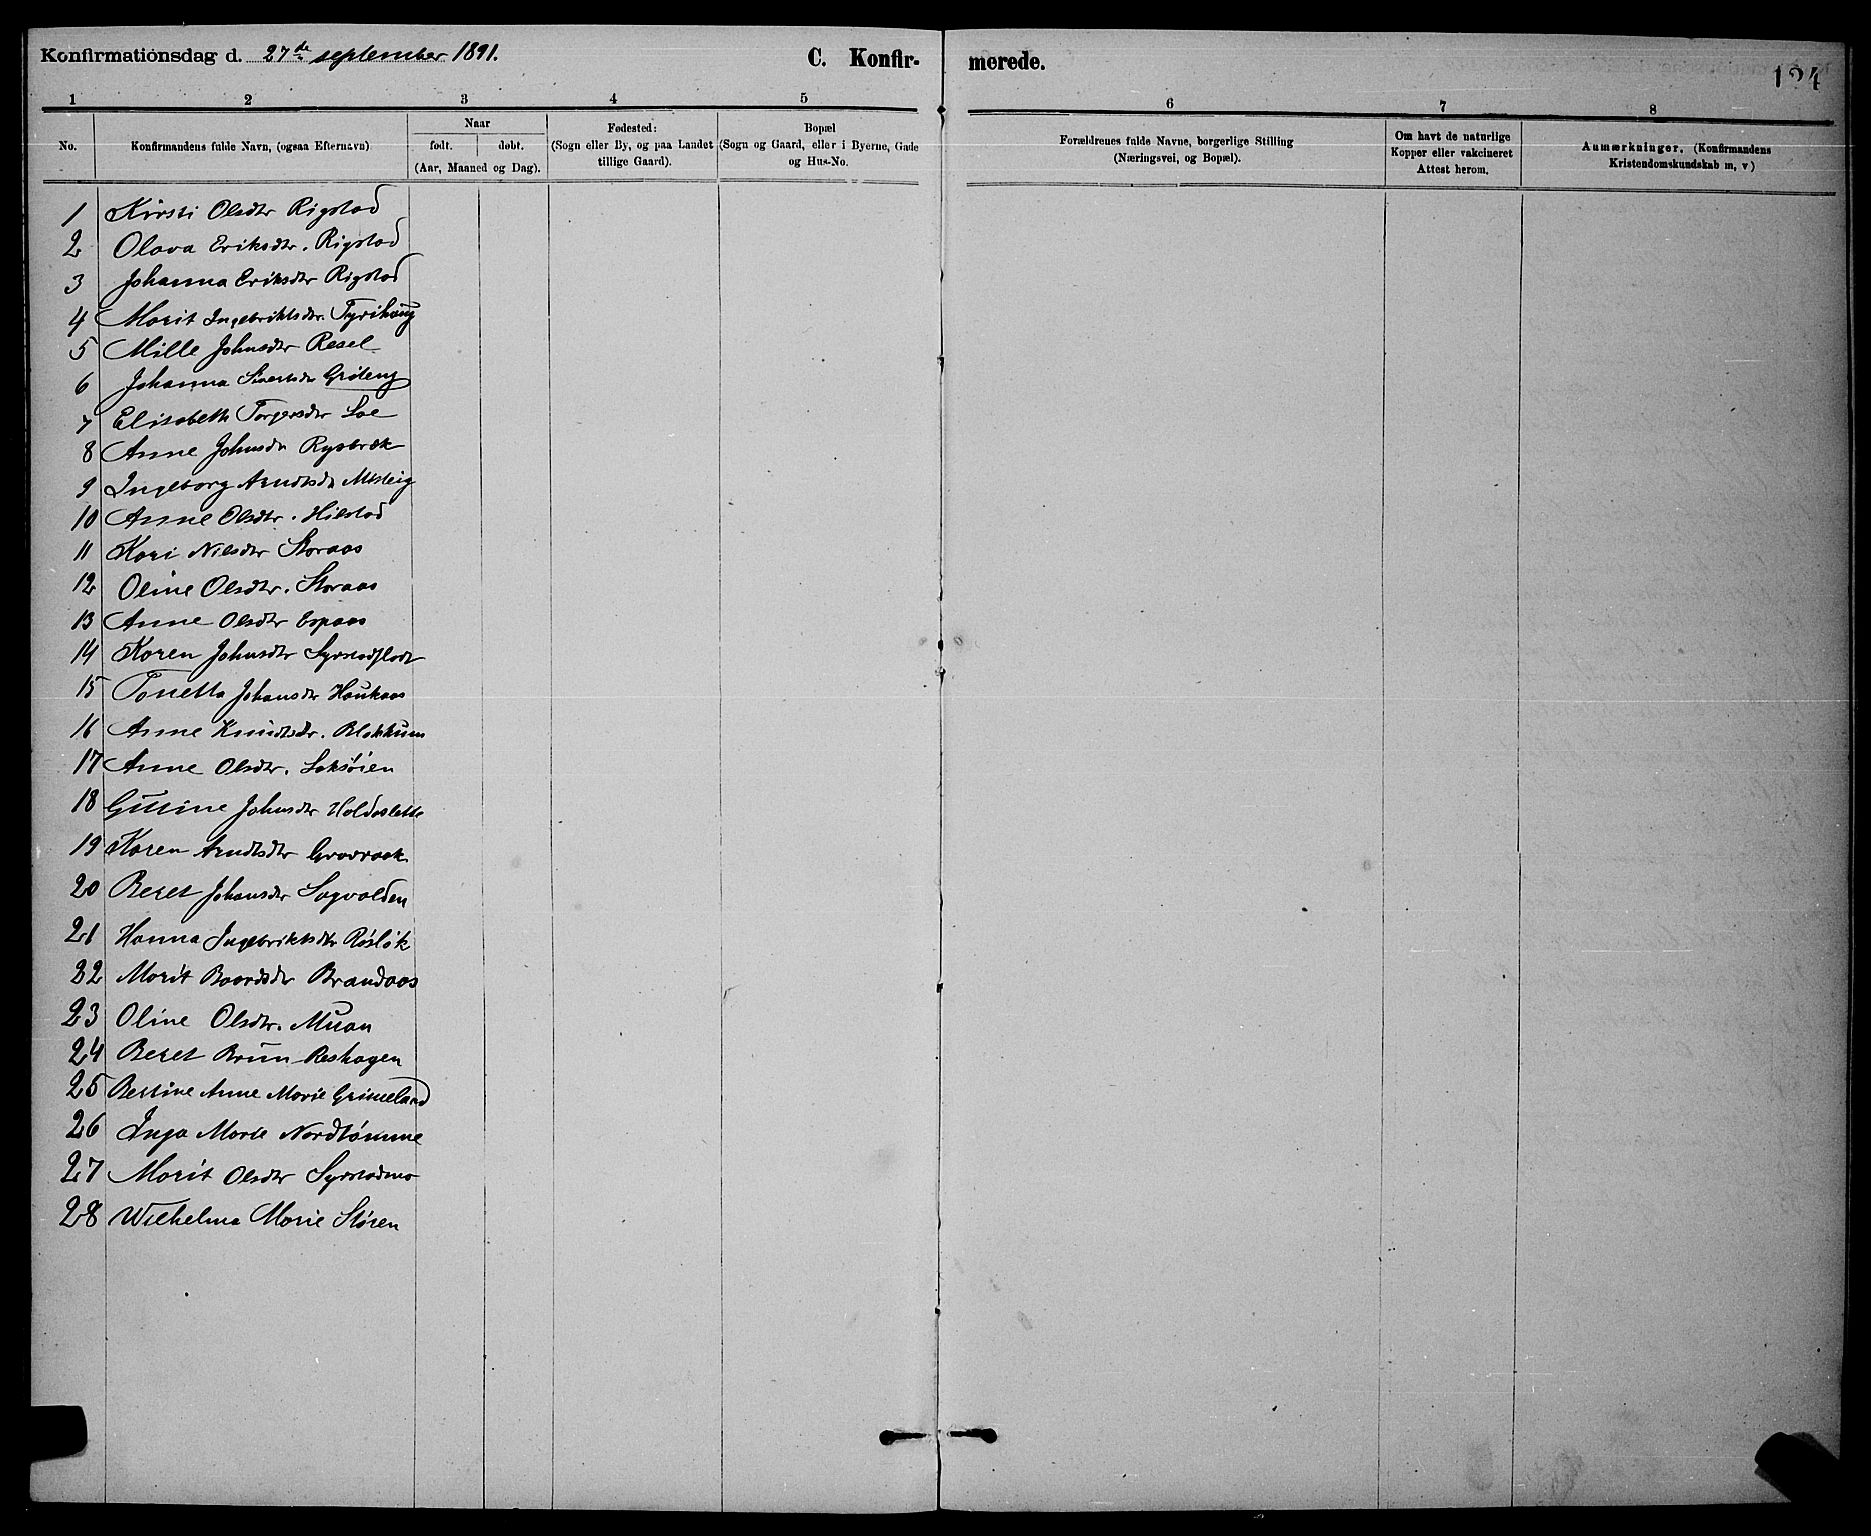 Konfirmationsdag d. 27de september 1891. C. Konfir-
merede.
1 2 3 4 5
6 7 8
No. Konfirmandens fulde Navn, (ogsaa Efternavn) Naar født. døbt. (Aar, Maaned og Dag). Fødested: (Sogn eller By, og paa Landet tillige Gaard). Bopæl (Sogn og Gaard, eller i Byerne, Gade og Hus-No.
Forældrenes fulde Navne, borgerlige Stilling (Næringsvei, og Bopæl). Om havt de naturlige Kopper eller vakcineret Attest herom. Anmærkninger. (Konfirmandens Kristendomskundskab m, v)
1 Kirsti Olsdtr Rigstad
2 Olava Eriksdtr. Rigstad
3 Johanna Eriksdtr Rigstad
4 Marit Ingebriktsdtr. Tyrihaug
5 Mille Johnsdtr Resel
6 Johanna Sivertsdr Grøteng
7 Elisabeth Torgersdtr Loe
8 Anne Johnsdr Rysbræk
9 Ingeborg Arndtsdr
10 Anne Olsdtr. Hilstad
11 Kari Nilsdtr Storaas
12 Oline Olsdtr. Storaas
13 Anne Olsdtr Espaas
14 Karen Johnsdtr Syrstadflodt
15 Tonetta Johansdtr Haukaas
16 Anne Knudtsdr. Blokkum
17 Anne Olsdtr. Laksøien
18 Gusine Johnsdtr Holdasletta
19 Karen Arndtsdtr
20 Beret Johansdtr Sagvolden
21 Hanna Ingebriktsdtr Røsløk
22 Marit Baardsdtr Brandaas
23 Oline Olsdtr. Muan
24 Beret Brun Reshagen
25 Bertine Anne Marie Grimeland
26 Inga Marie Nordtømme
27 Marit Olsdtr Syrstadmo
28 Wilhelma Marie Støren